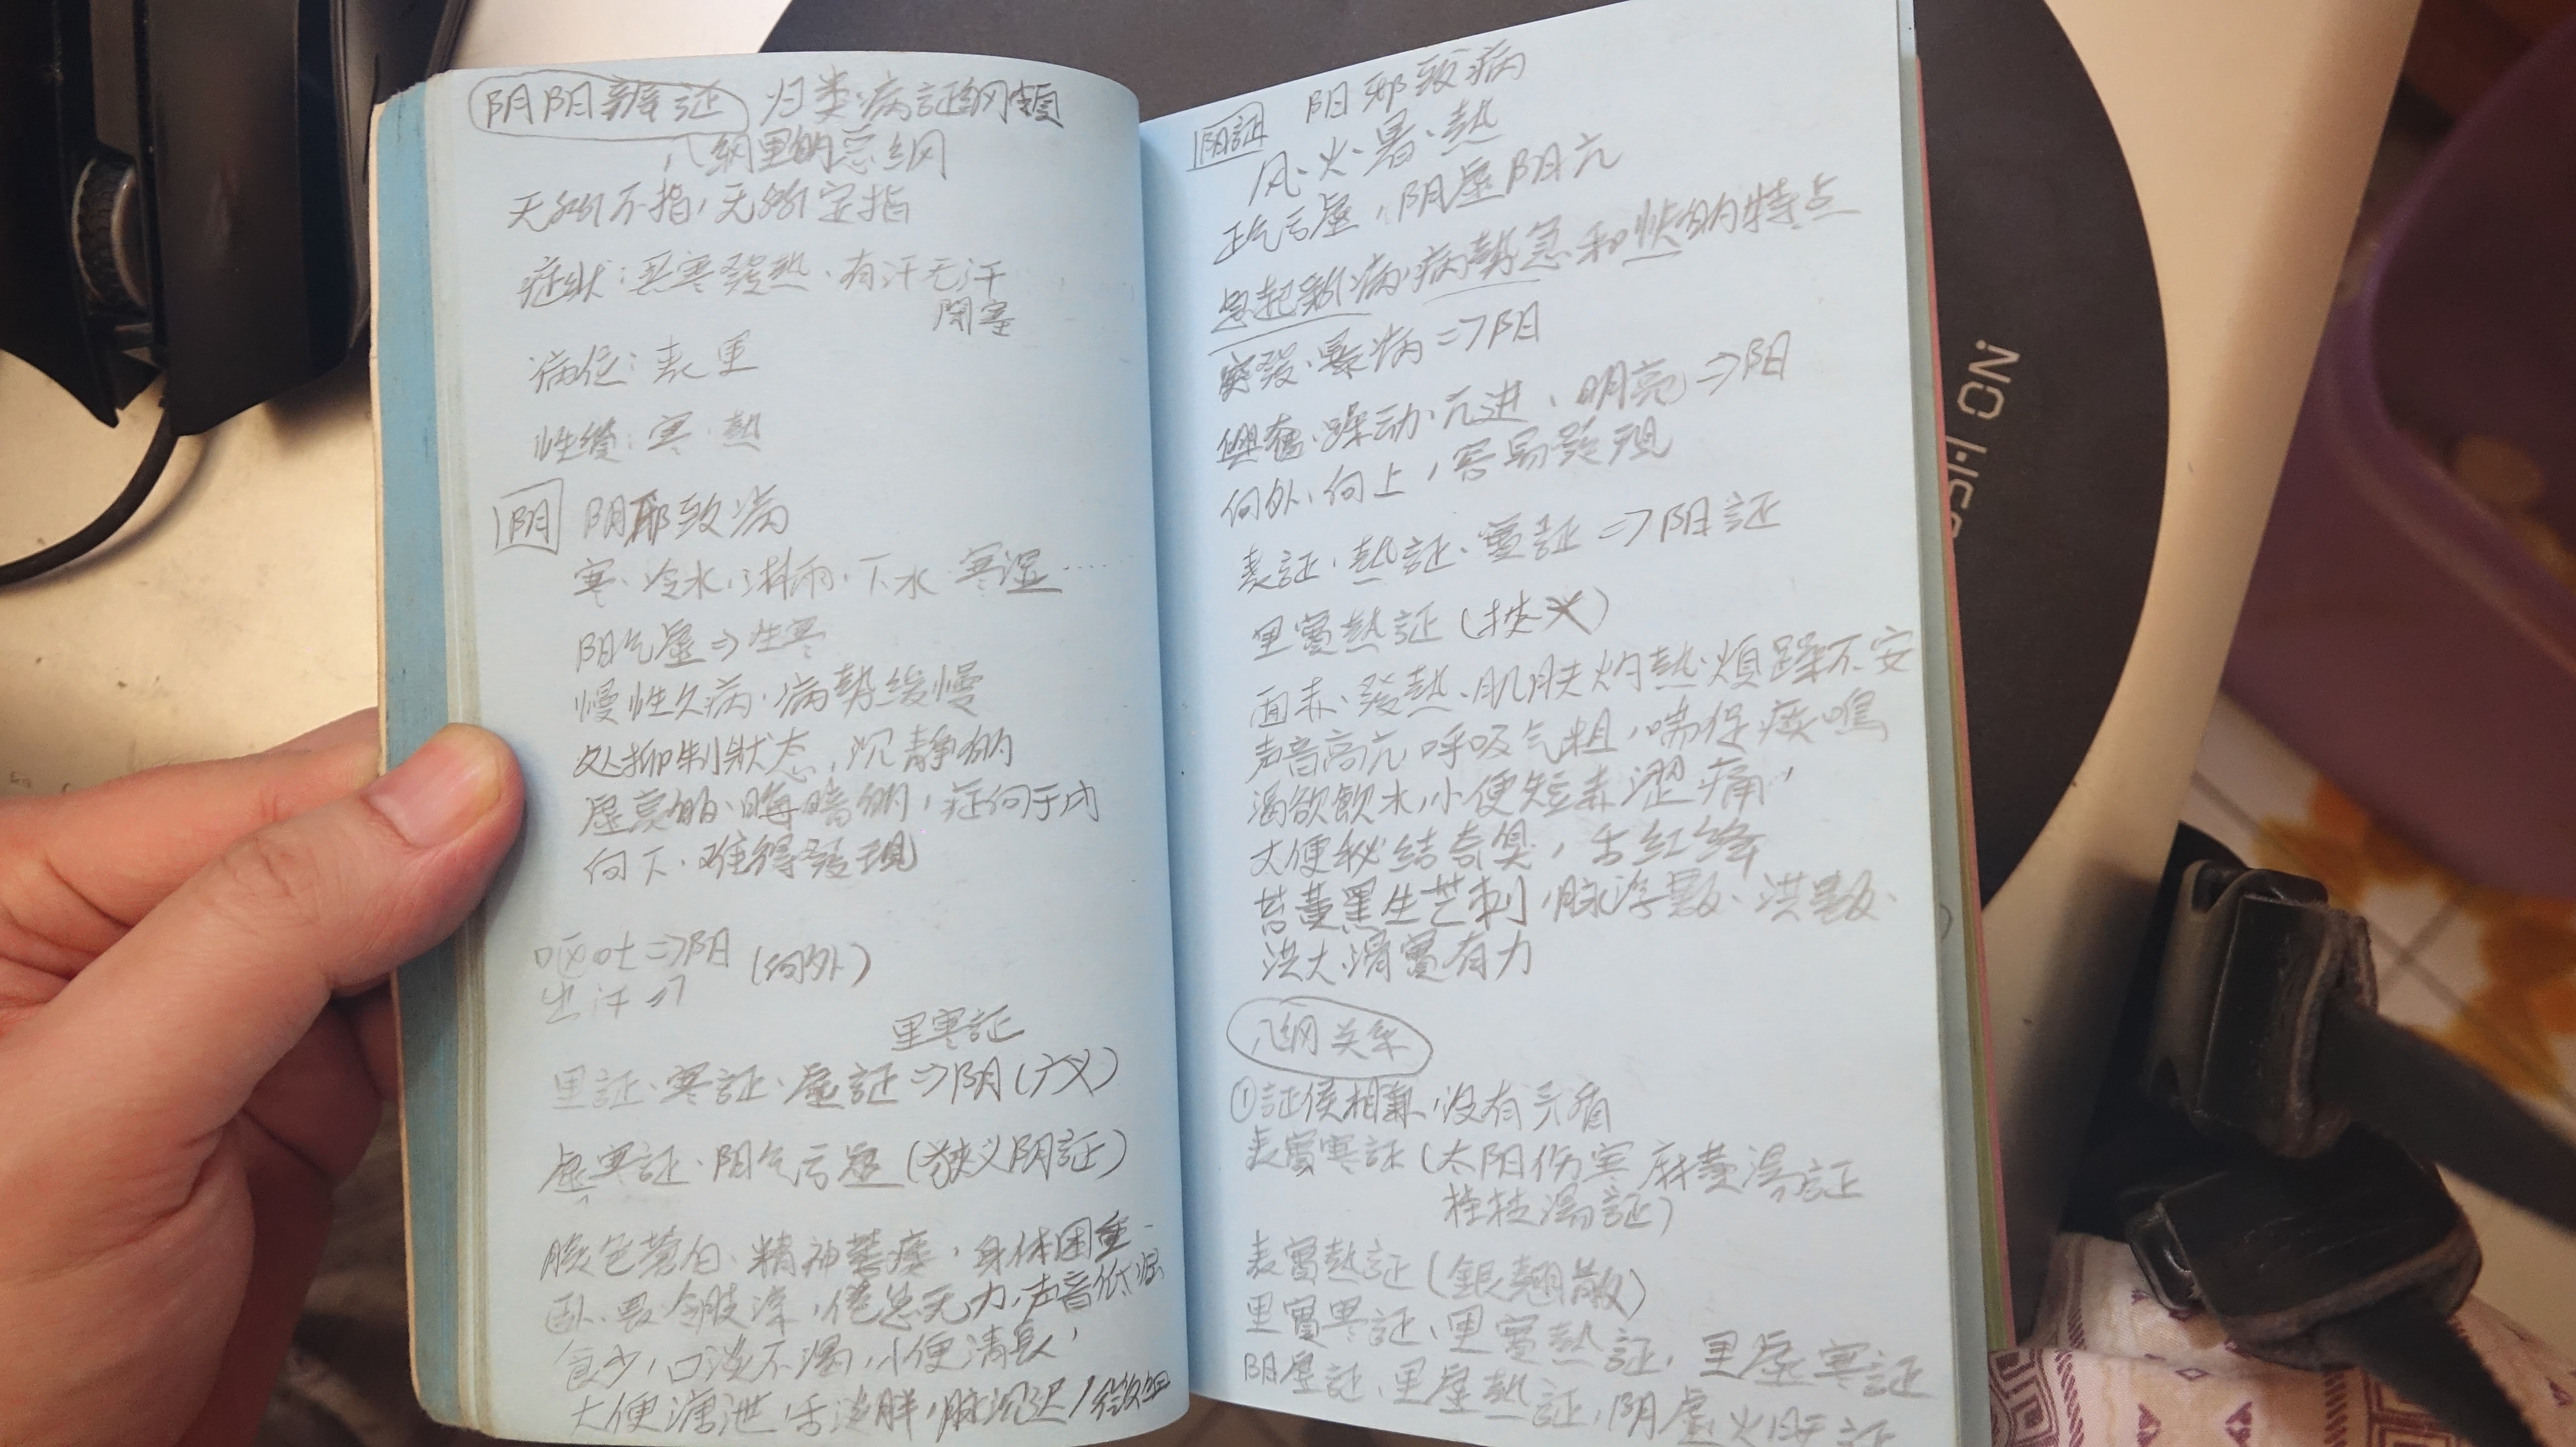 阴阳辨证 归类病証纲领
八纲里的总纲
无所不指,无所定指
症状:恶寒發热、有汗无汗
閉塞
病位:表里
性质:寒、熱
阴 阴邪致病
寒、冷水、淋雨、下水 寒湿……
阳气虚⇒生寒
慢性久病、病势缓慢
处抑制狀态,沉静的
虚衰的、晦暗的,症向于内
向下、难得發現
呕吐⇒阳 (向外)
出汗⇒
里寒証
里証、寒証、虚証⇒阴(广义)
虚寒証、阳气亏虚(狭义阴証)
臉色蒼白、精神萎靡,身体困重
卧、畏冷肢凉,倦怠无力,声音低
食少,口淡不渴,小便清長,
大便溏泄,舌淡胖,脉沉迟/微细
阳証 阳邪致病
风、火、暑、熱
正气亏虚,阴虚阳亢
急起新病,病勢急和快的特点
突發、暴病⇒阳
興奮、躁动、亢进、明亮⇒阳
向外、向上,容易發現
表証、熱証、實証⇒阳証
里實熱証(狭义)
面赤、發熱、肌肤灼熱、煩躁不安
声音高亢 呼吸气粗,喘促痰鳴
渴欲飲水,小便短赤澀痛,
大便秘結奇臭,舌紅绛
苔黃黑生芒刺,脉浮數、洪數、
洪大、滑實有力
八纲关系
①証候相兼,没有矛盾
表實寒証(太阳伤寒 麻黄湯証
桂枝湯証)
表實熱証(銀翹散)
里實寒証、里實熱証,里虚寒証
阳虚証、里虚熱証,阴虚火旺証
NOI